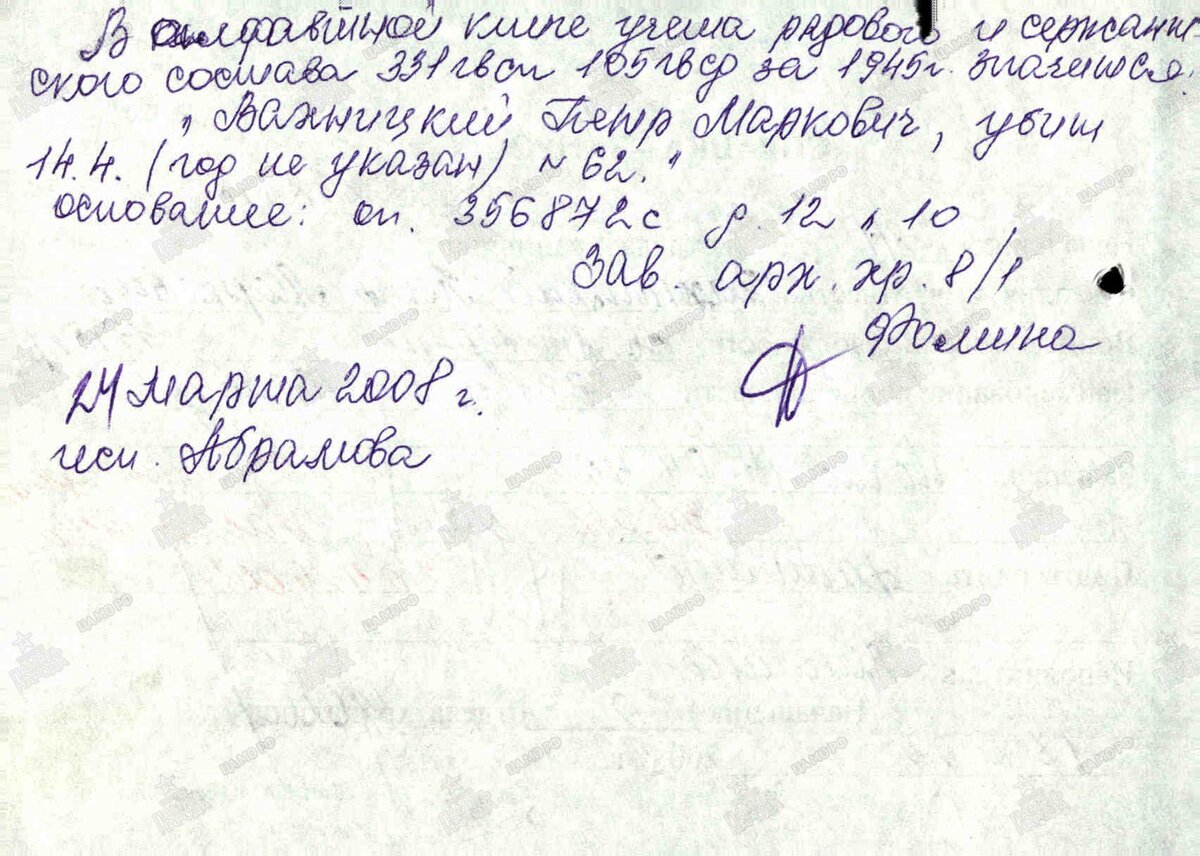 В алфавитной книге учета рядового и сержант-
ского состава 331 гвсп 105 гвсд за 1945 г. значится:
„Важницкий Петр Маркович, убит
14.4. (год не указан) ~ 62."
основание: оп. 356872с д. 12 л. 10
Зав. арх. хр. 8/1
Фомина
24 марта 2008 г.
исп. Абрамова